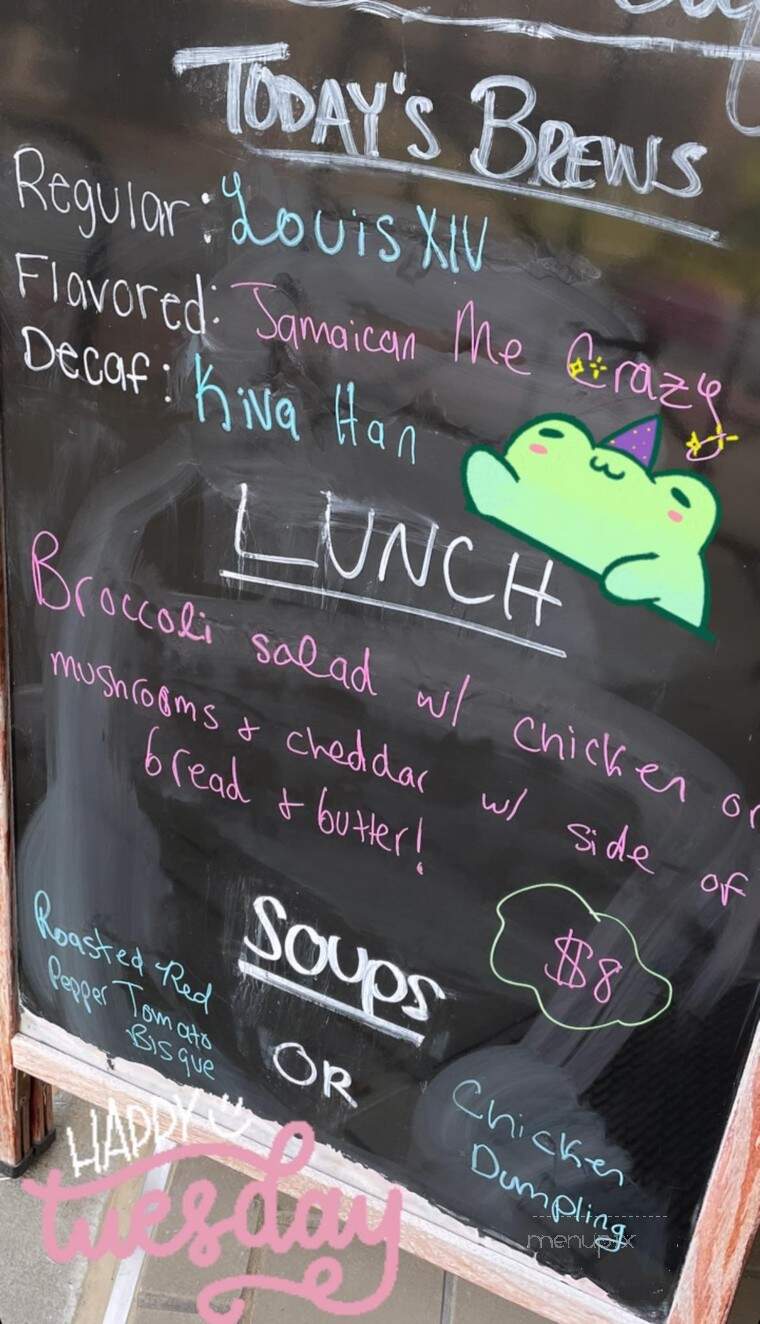 TODAY'S BREWS
Regular: Louis XIV
Flavored: Jamaican Me Crazy
Decaf: Kiva Han
LUNCH
Broccoli salad w/ chicken or
mushrooms & cheddar w/ side of
bread & butter!
$8
SOUPS
Roasted Red
Pepper Tomato
Bisque
OR
Chicken
Dumpling
HAPPY
tuesday
menupix